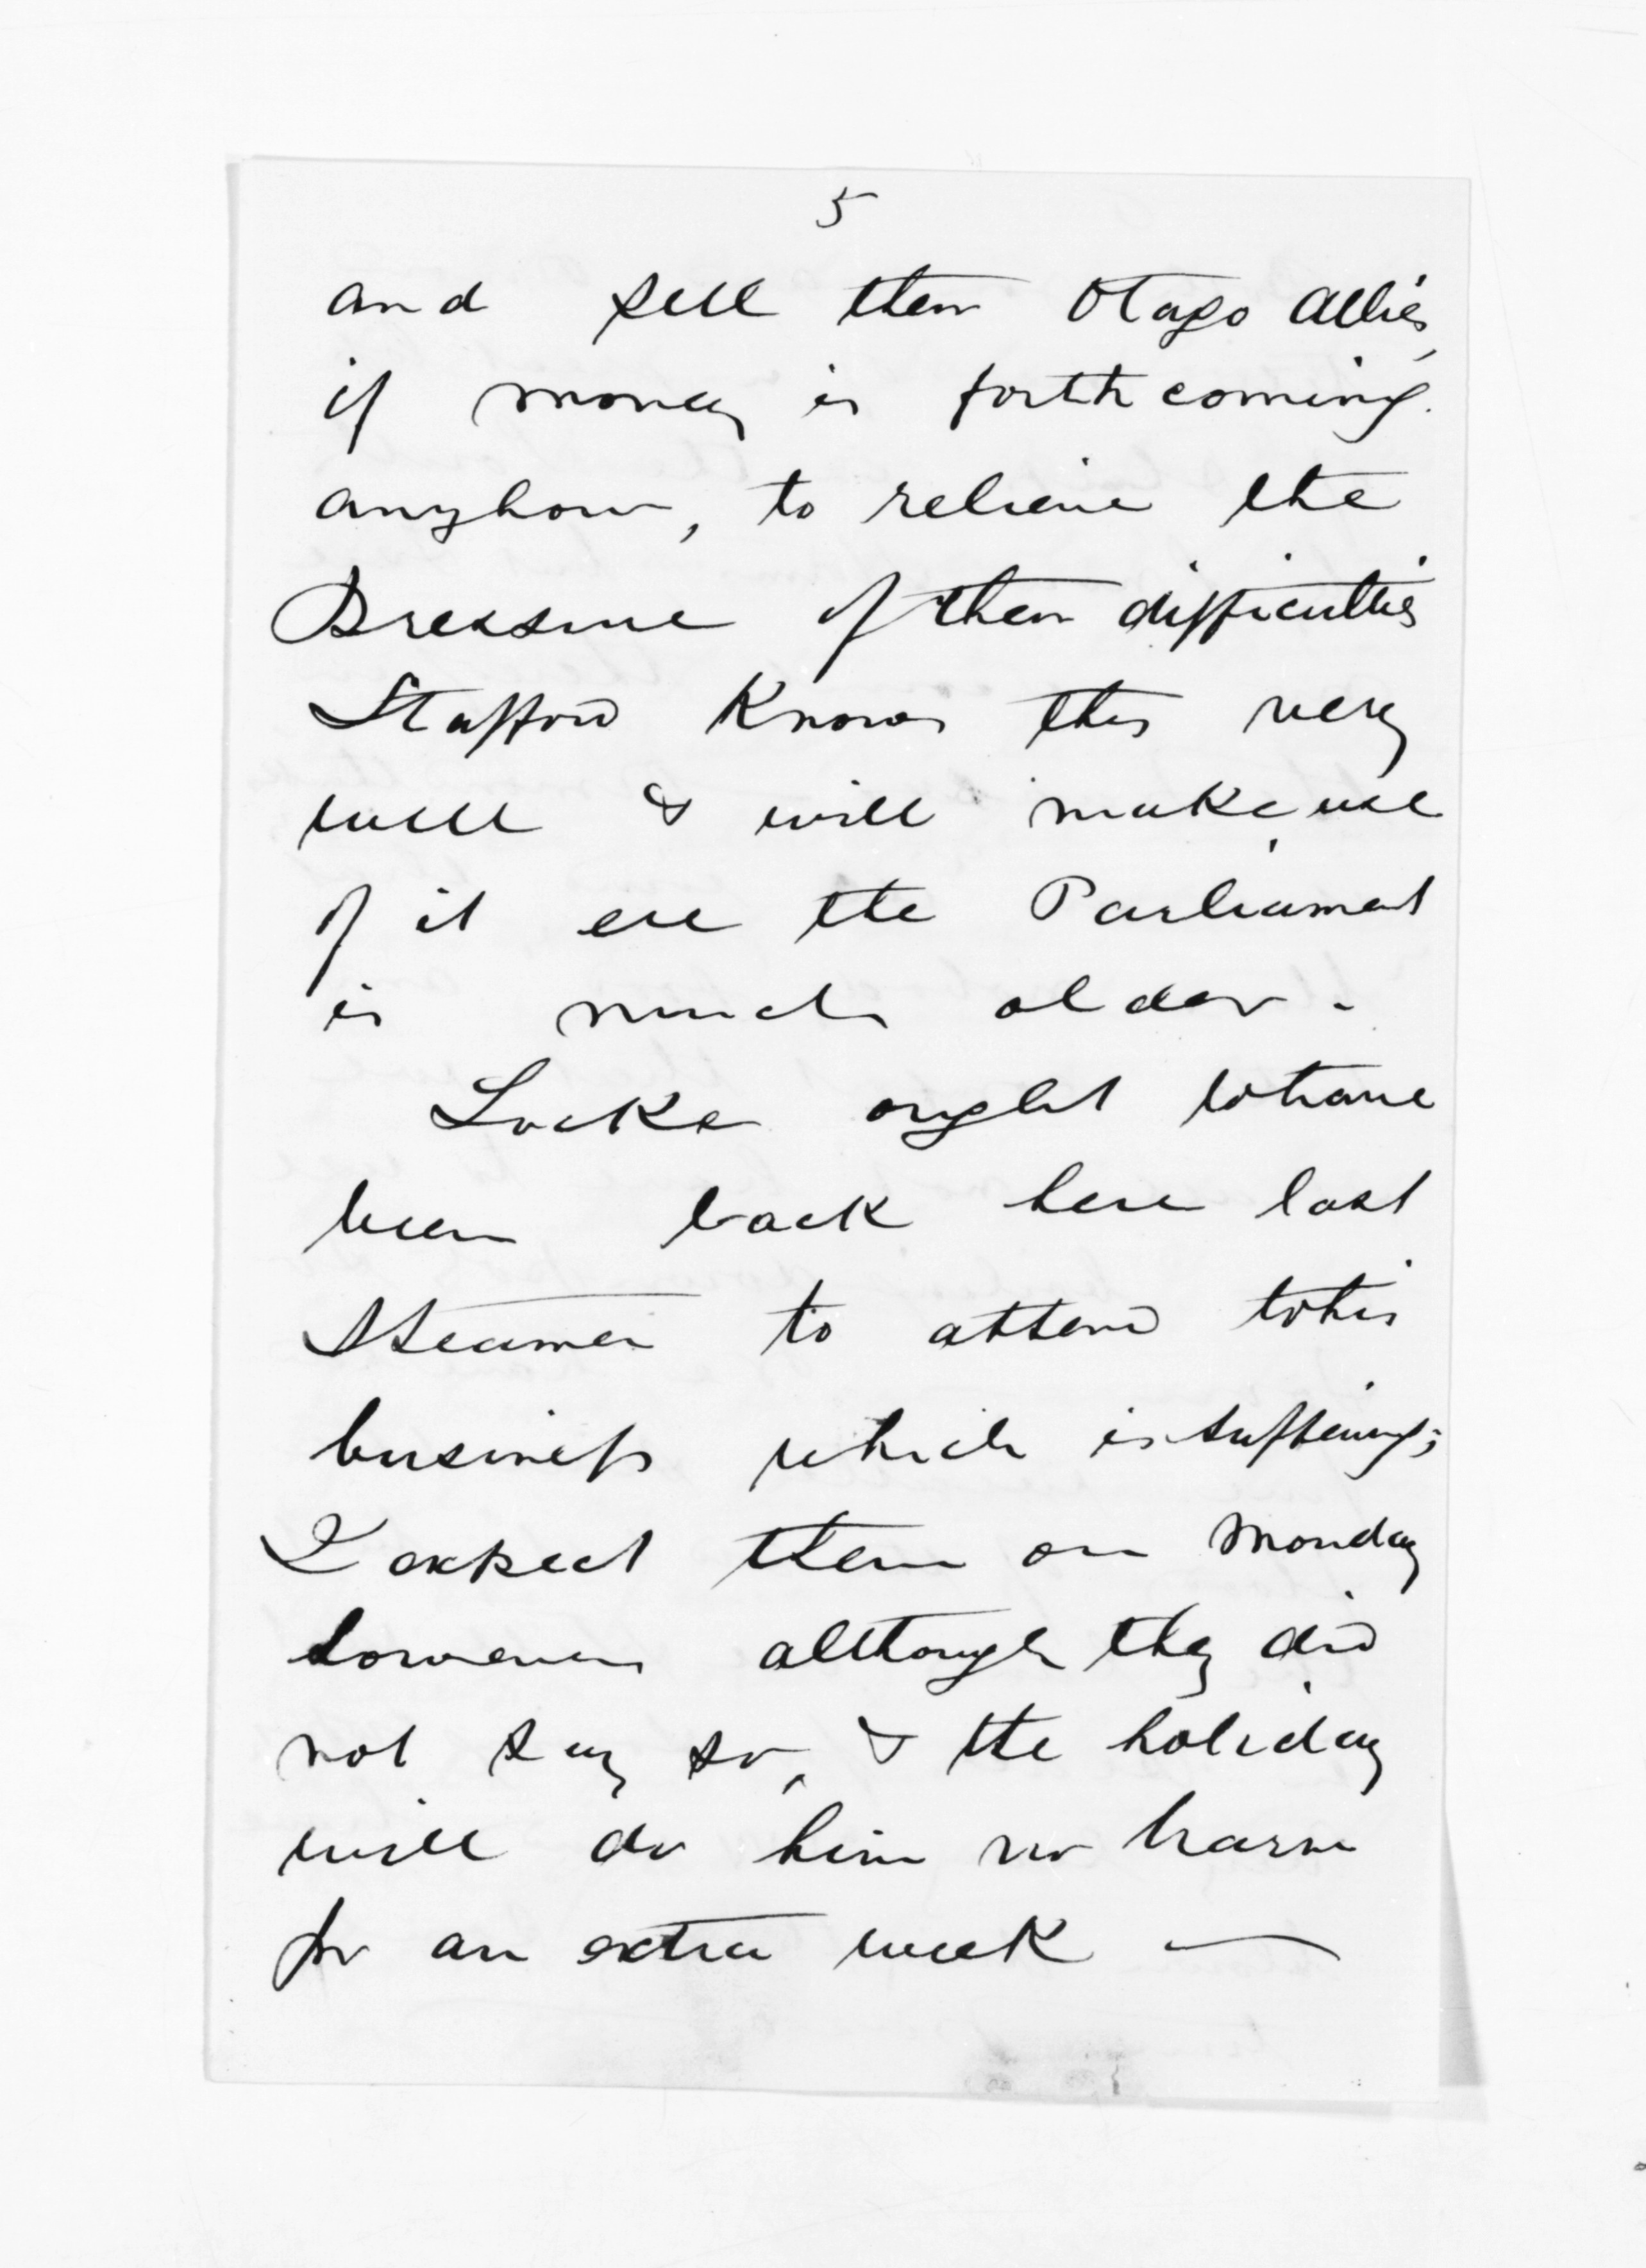 5
and sell their Otago Allies,
if money is forthcoming.
anyhow, to relieve the
pressure of their difficulties
Stafford Knows this very
well & will make use
of it ere the Parliament
is much older -
Locke ought to have
been back here last
Steamer to attend to his
business which is suffering;
I expect them on Monday
however although they did
not say so, & the holiday
will do him no harm
for an extra week —